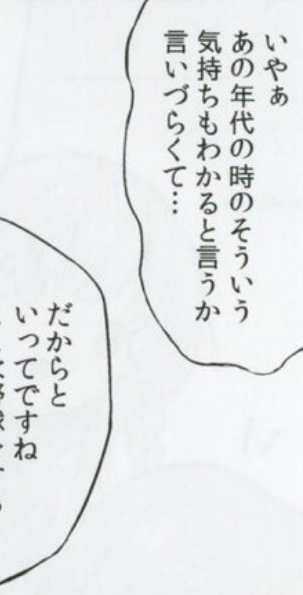 いやぁ
あの年代の時のそういう
気持ちもわかると言うか
言いづらくて…
だからと
いってですね